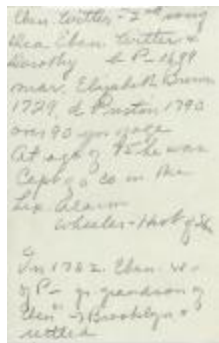 Eben. Witter - 2nd
Dea Eben. Witter &
Dorothy b P - 1699
mar. Elizabeth Brown
1729. d Preston 1790
over 90 yrs of age
At age of 75 he was
Capt of a co in the
Lex. Alarm
Wheeler - Hist of
In 1782 Eben. W
of P - gr grandson of
Eben - Brooklyn &
settled